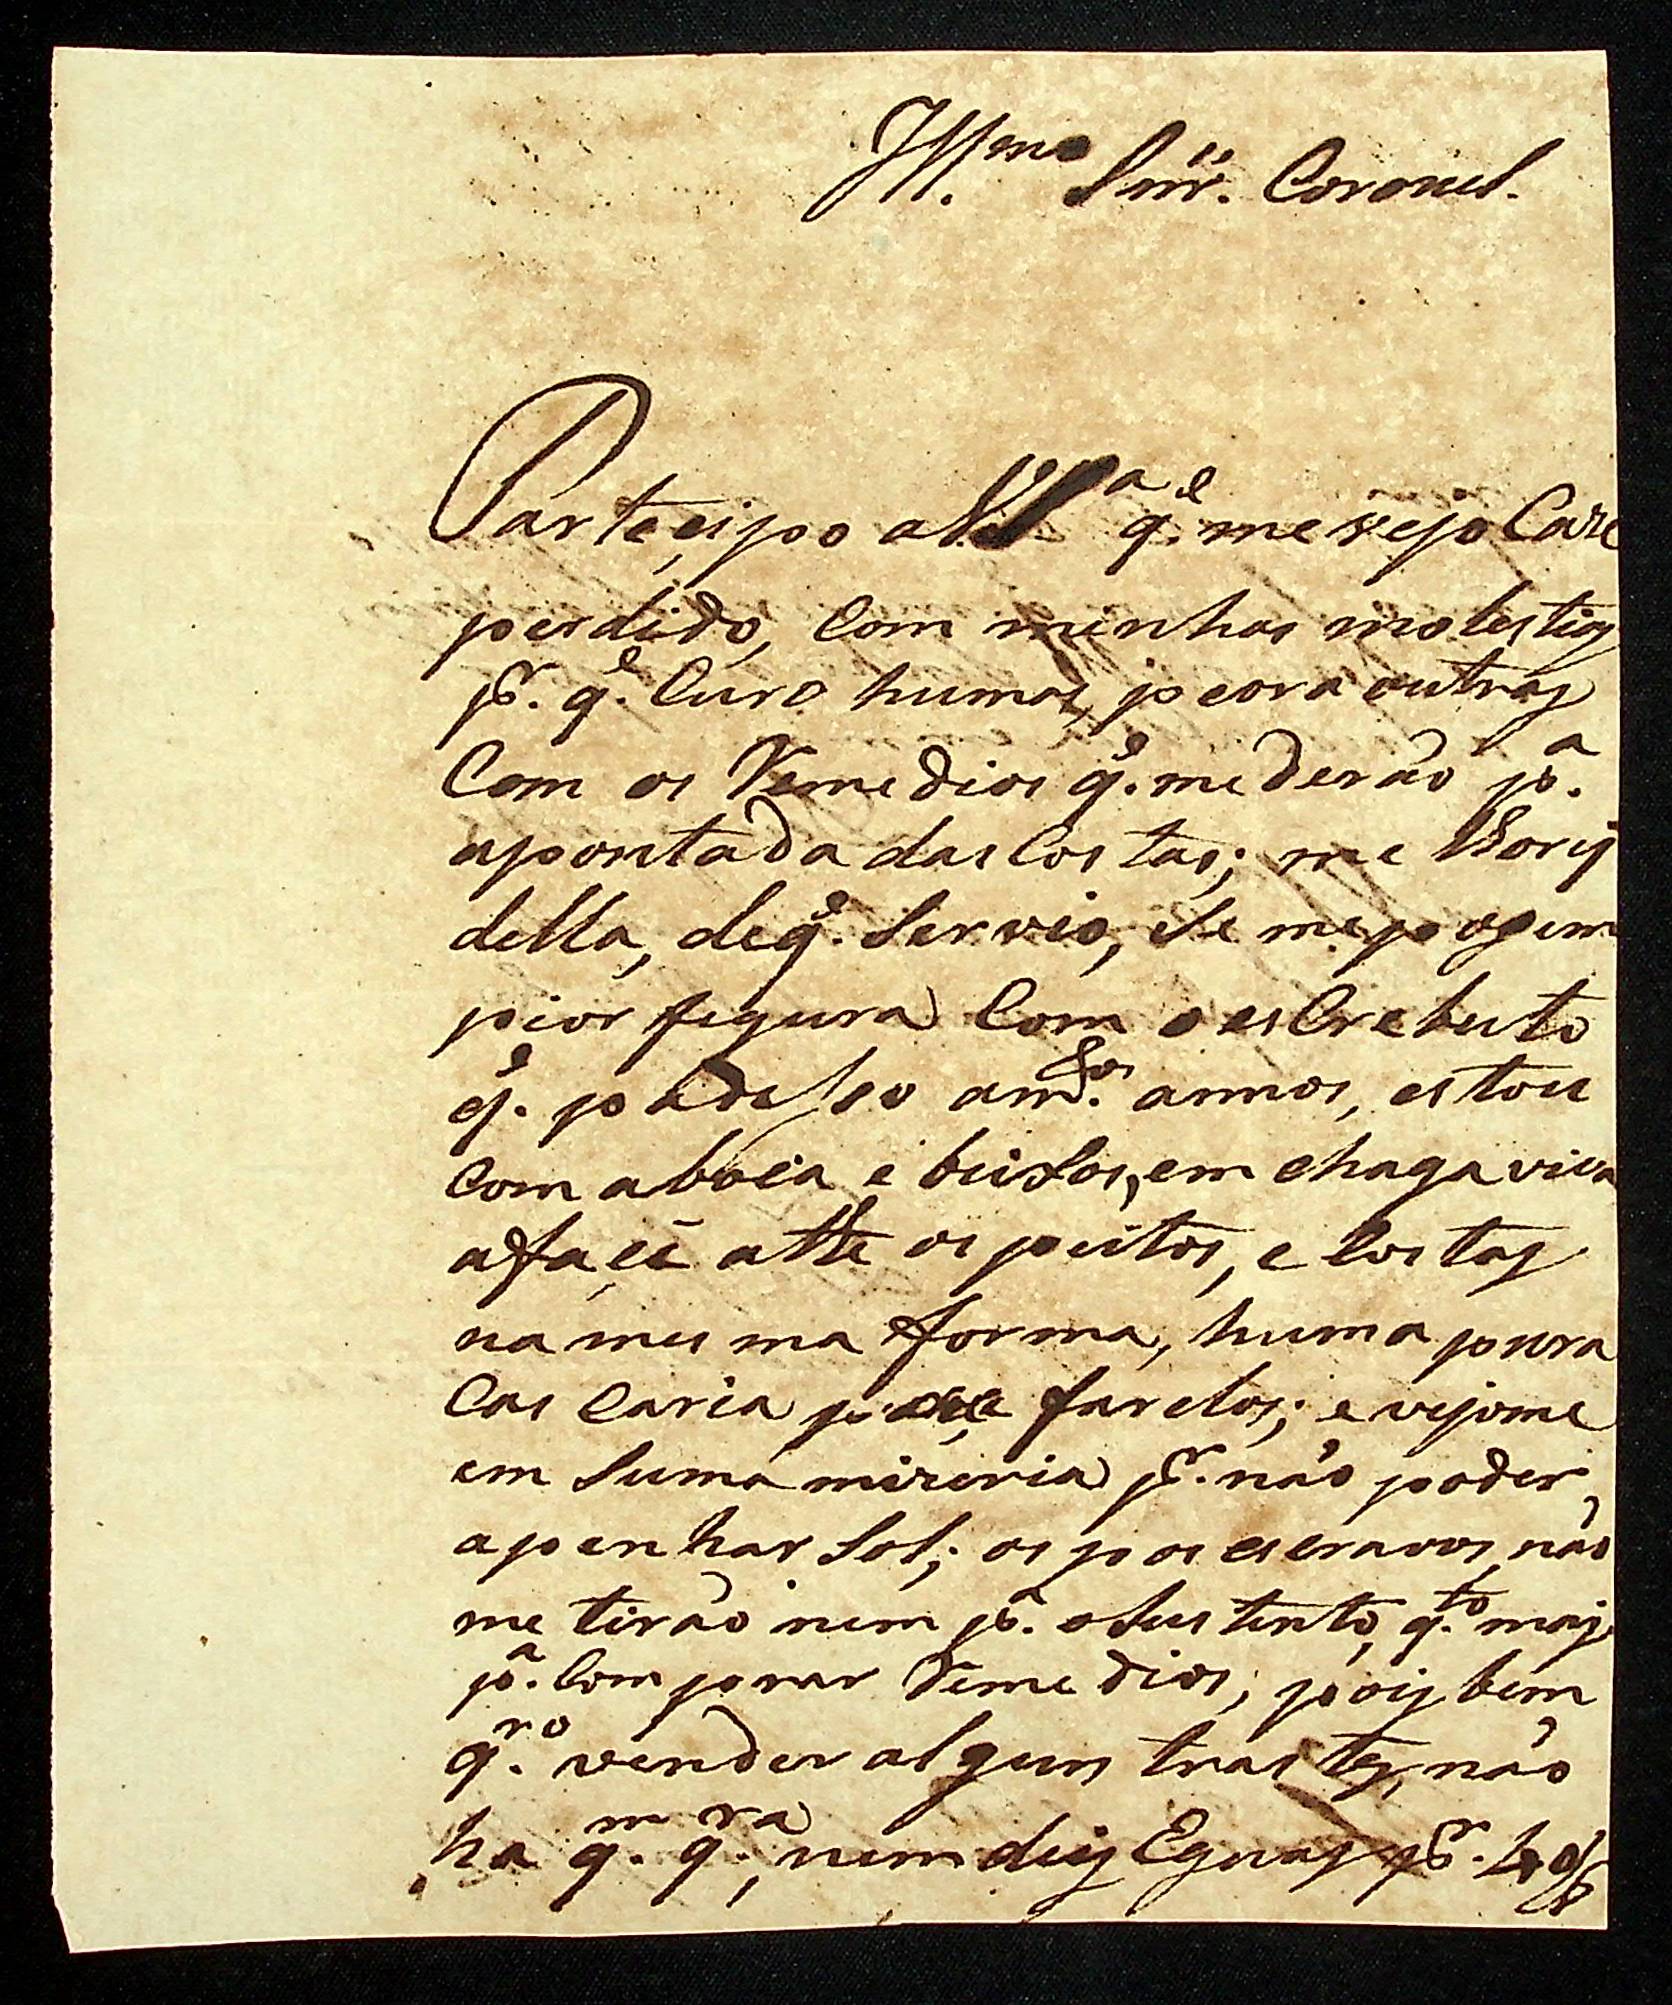 Illmo. Snr. Coronel.
Partecipo a V.Sa. qe. me vejo Caze
perdido, Com minhas molestias
pr. qe. Curo humas, peora outras
Com os Remedios qe. me derão pa.
apontada das Costas; me
della, de qe. Servio, Se me poz em
pior figura Com o esCrebuto
qe. padesso a mtos. annos, estou
Com a boca e beisos, em chaga viva
a façe atte os peitos, e Costas
na mesma forma, huma pura
CasCaria farelos; e vejome
em Suma mizeria pr. não poder
apanhar Sol; os pos escravos, não
me tirão nem pa. o Sustento, qto. mais
pa. Comprar Remedios; pois bem
qro. vender alguns trastes, não
ha qm. qra., nem deis Eguas pr. 4$